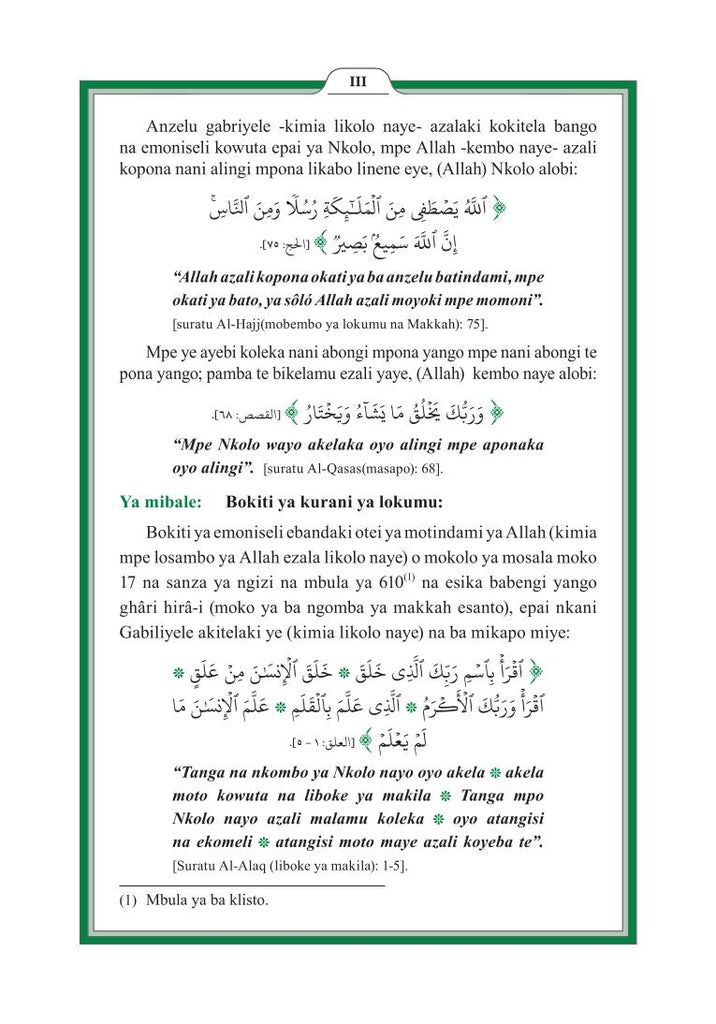 III
Anzelu gabriyele -kimia likolo naye- azalaki kokitela bango
na emoniseli kowuta epai ya Nkolo, mpe Allah -kembo naye- azali
kopona nani alingi mpona likabo linene eye, (Allah) Nkolo alobi:
﴿ ٱللَّهُ يَصۡطَفِي مِنَ ٱلۡمَلَٰٓئِكَةِ رُسُلٗا وَمِنَ ٱلنَّاسِۚ
إِنَّ ٱللَّهَ سَمِيعُۢ بَصِيرٞ ﴾ [الحج: ٧٥].
“Allah azali kopona okati ya ba anzelu batindami, mpe
okati ya bato, ya sôló Allah azali moyoki mpe momoni”.
[suratu Al-Hajj(mobembo ya lokumu na Makkah): 75].
Mpe ye ayebi koleka nani abongi mpona yango mpe nani abongi te
pona yango; pamba te bikelamu ezali yaye, (Allah) kembo naye alobi:
﴿ وَرَبُّكَ يَخۡلُقُ مَا يَشَآءُ وَيَخۡتَارُ ﴾ [القصص: ٦٨].
“Mpe Nkolo wayo akelaka oyo alingi mpe aponaka
oyo alingi”. [suratu Al-Qasas(masapo): 68].
Ya mibale: Bokiti ya kurani ya lokumu:
Bokiti ya emoniseli ebandaki otei ya motindami ya Allah (kimia
mpe losambo ya Allah ezala likolo naye) o mokolo ya mosala moko
17 na sanza ya ngizi na mbula ya 610(1) na esika babengi yango
ghâri hirâ-i (moko ya ba ngomba ya makkah esanto), epai nkani
Gabiliyele akitelaki ye (kimia likolo naye) na ba mikapo miye:
﴿ ٱقۡرَأۡ بِٱسۡمِ رَبِّكَ ٱلَّذِي خَلَقَ * خَلَقَ ٱلۡإِنسَٰنَ مِنۡ عَلَقٍ *
ٱقۡرَأۡ وَرَبُّكَ ٱلۡأَكۡرَمُ * ٱلَّذِي عَلَّمَ بِٱلۡقَلَمِ * عَلَّمَ ٱلۡإِنسَٰنَ مَا
لَمۡ يَعۡلَمۡ ﴾ [العلق: ١ - ٥].
“Tanga na nkombo ya Nkolo nayo oyo akela * akela
moto kowuta na liboke ya makila * Tanga mpo
Nkolo nayo azali malamu koleka * oyo atangisi
na ekomeli * atangisi moto maye azali koyeba te”.
[Suratu Al-Alaq (liboke ya makila): 1-5].
(1) Mbula ya ba klisto.